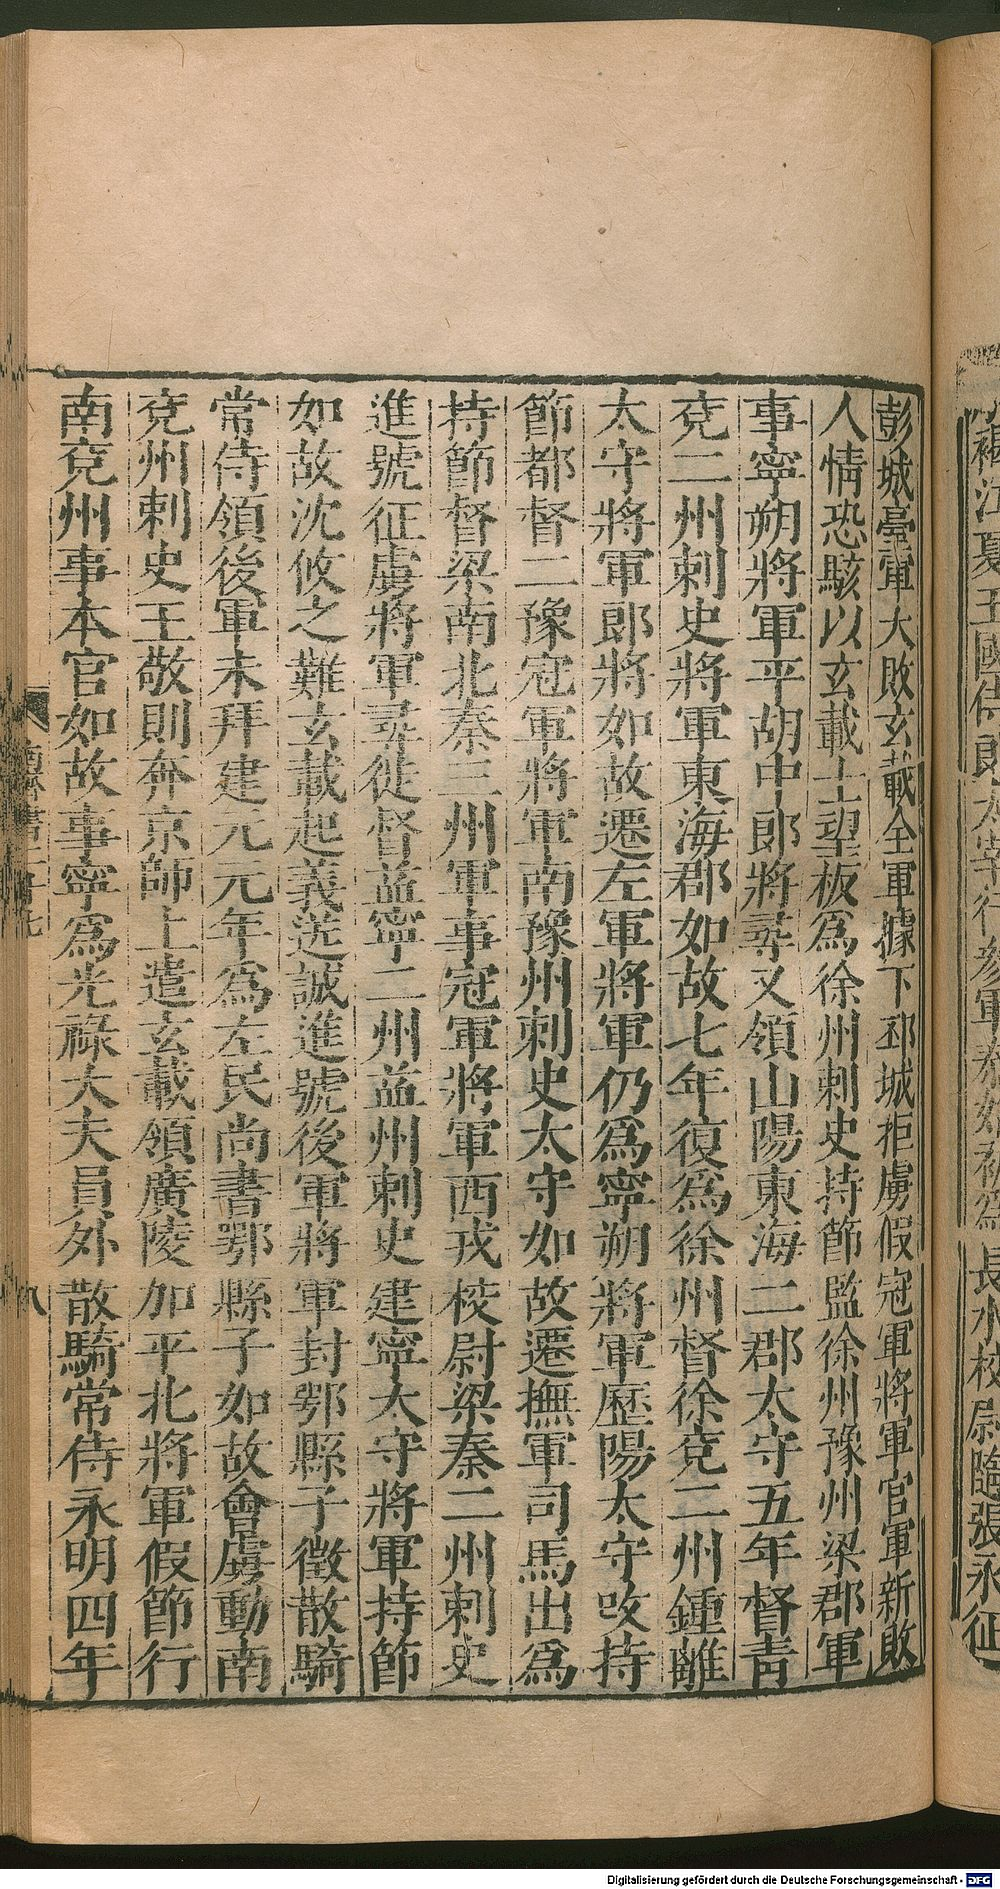 彭城臺軍大敗玄載全軍據下邳城拒虜假冠軍將軍官軍新敗
人情恐駭以玄載士望板爲徐州刺史持節監徐州豫州梁郡軍
事寧朔將軍平胡中郎將尋又領山陽東海二郡太守五年督青
兗二州刺史將軍東海郡如故七年復爲徐州督徐兗二州鍾離
太守將軍郎將如故遷左軍將軍仍爲寧朔將軍歷陽太守改持
節都督二豫冠軍將軍南豫州刺史太守如故遷撫軍司馬出爲
持節督梁南北秦三州軍事冠軍將軍西戎校尉梁秦二州刺史
進號征虜將軍尋徙督益寧二州益州刺史建寧太守將軍持節
如故沈攸之難玄載起義送誠進號後軍將軍封鄂縣子徵散騎
常侍領後軍未拜建元元年爲左民尚書鄂縣子如故會虜動南
兗州刺史王敬則奔京師上遣玄載領廣陵加平北將軍假節行
南兗州事本官如故事寧爲光祿大夫員外散騎常侍永明四年
八
Digitalisierung gefördert durch die Deutsche Forschungsgemeinschaft - DFG